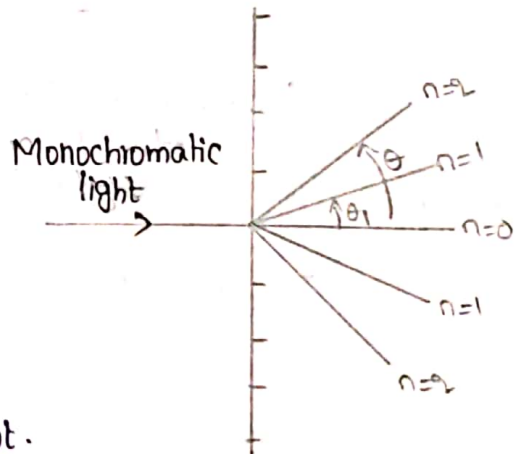 n=2
Monochromatic
light
θ
n=1
θ₁
n=0
n=1
n=2
t.